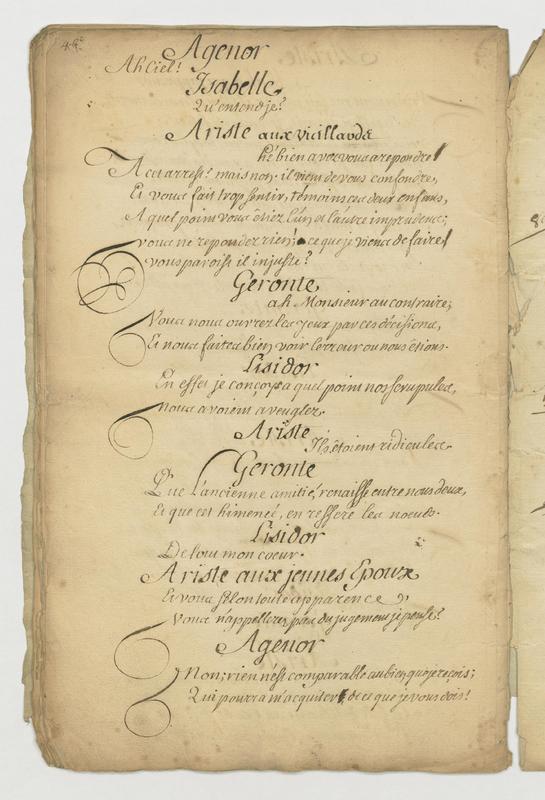 48.
Agenor
Ah Ciel!
Isabelle
Qu'entend je?
Ariste aux vieillards
hé bien avez vous a repondre
A cet arrest? mais non. il vient de vous confondre,
Et vous fait trop sentir, témoins ces deux enfans,
A quel point vous étiez l'un et l'autre imprudens;
vous ne repondez rien! ce que je viens de faire
vous paroist il injuste?
Geronte
ah. Monsieur au contraire;
Vous nous ouvrez les yeux par ces décisions,
Et nous faites bien voir l'erreur ou nous étions.
Lisidor
En effet je conçois a quel point nos scrupules,
nous avoient aveuglez.
Ariste
Ils étoient ridicules.
Geronte
Que l'ancienne amitié, renaisse entre nous deux,
Et que cet himeneé, en resserre les noeuds.
Lisidor
De tout mon coeur.
Ariste aux jeunes Epoux
Et vous selon toute apparence
Vous n'appellerez pas du jugement je pense?
Agenor
Non; rien n'est comparable au bien que je reçois;
Qui pourra m'acquiter de ce que je vous dois!